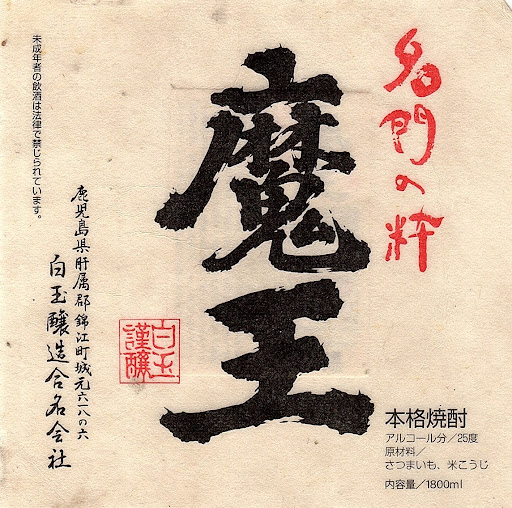 名門の粋
魔王
本格焼酎
アルコール分／25度
原材料／
さつまいも、米こうじ
内容量／1800ml
白玉
謹醸
鹿児島県肝属郡錦江町城元六一八の六
白玉醸造合名会社
未成年者の飲酒は法律で禁じられています。